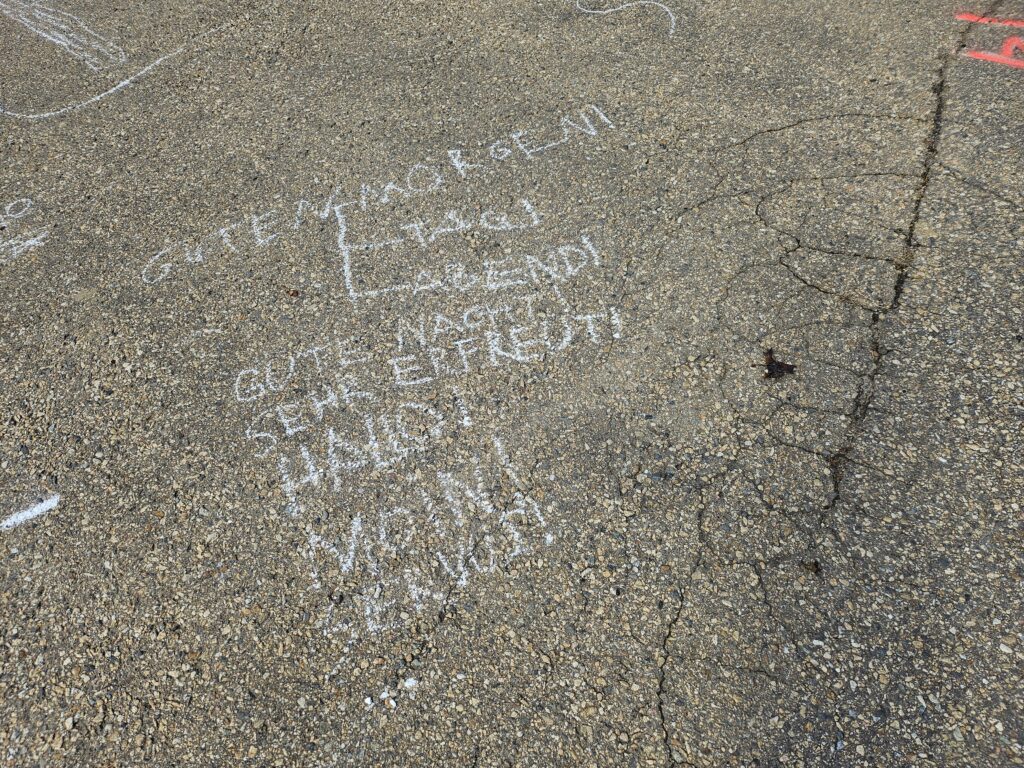 GUTEN MORGEN!
TAG!
ABEND!
GUTE NACHT
SEHR ERFREUT!
HALLO!
MOIN!